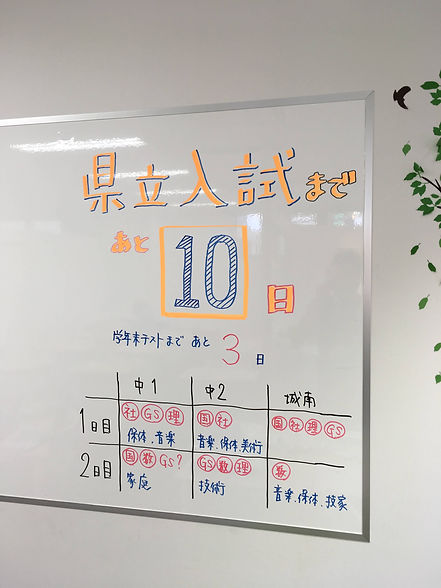 県立入試まで
あと 10 日
学年末テストまで あと 3 日
中1 中2 城南
1日目 社 GS 理 国 社 国 社 理 GS
保体.音楽 音楽.保体.美術
2日目 国 数 GS? GS 数 理 数
家庭 技術 音楽.保体.技家